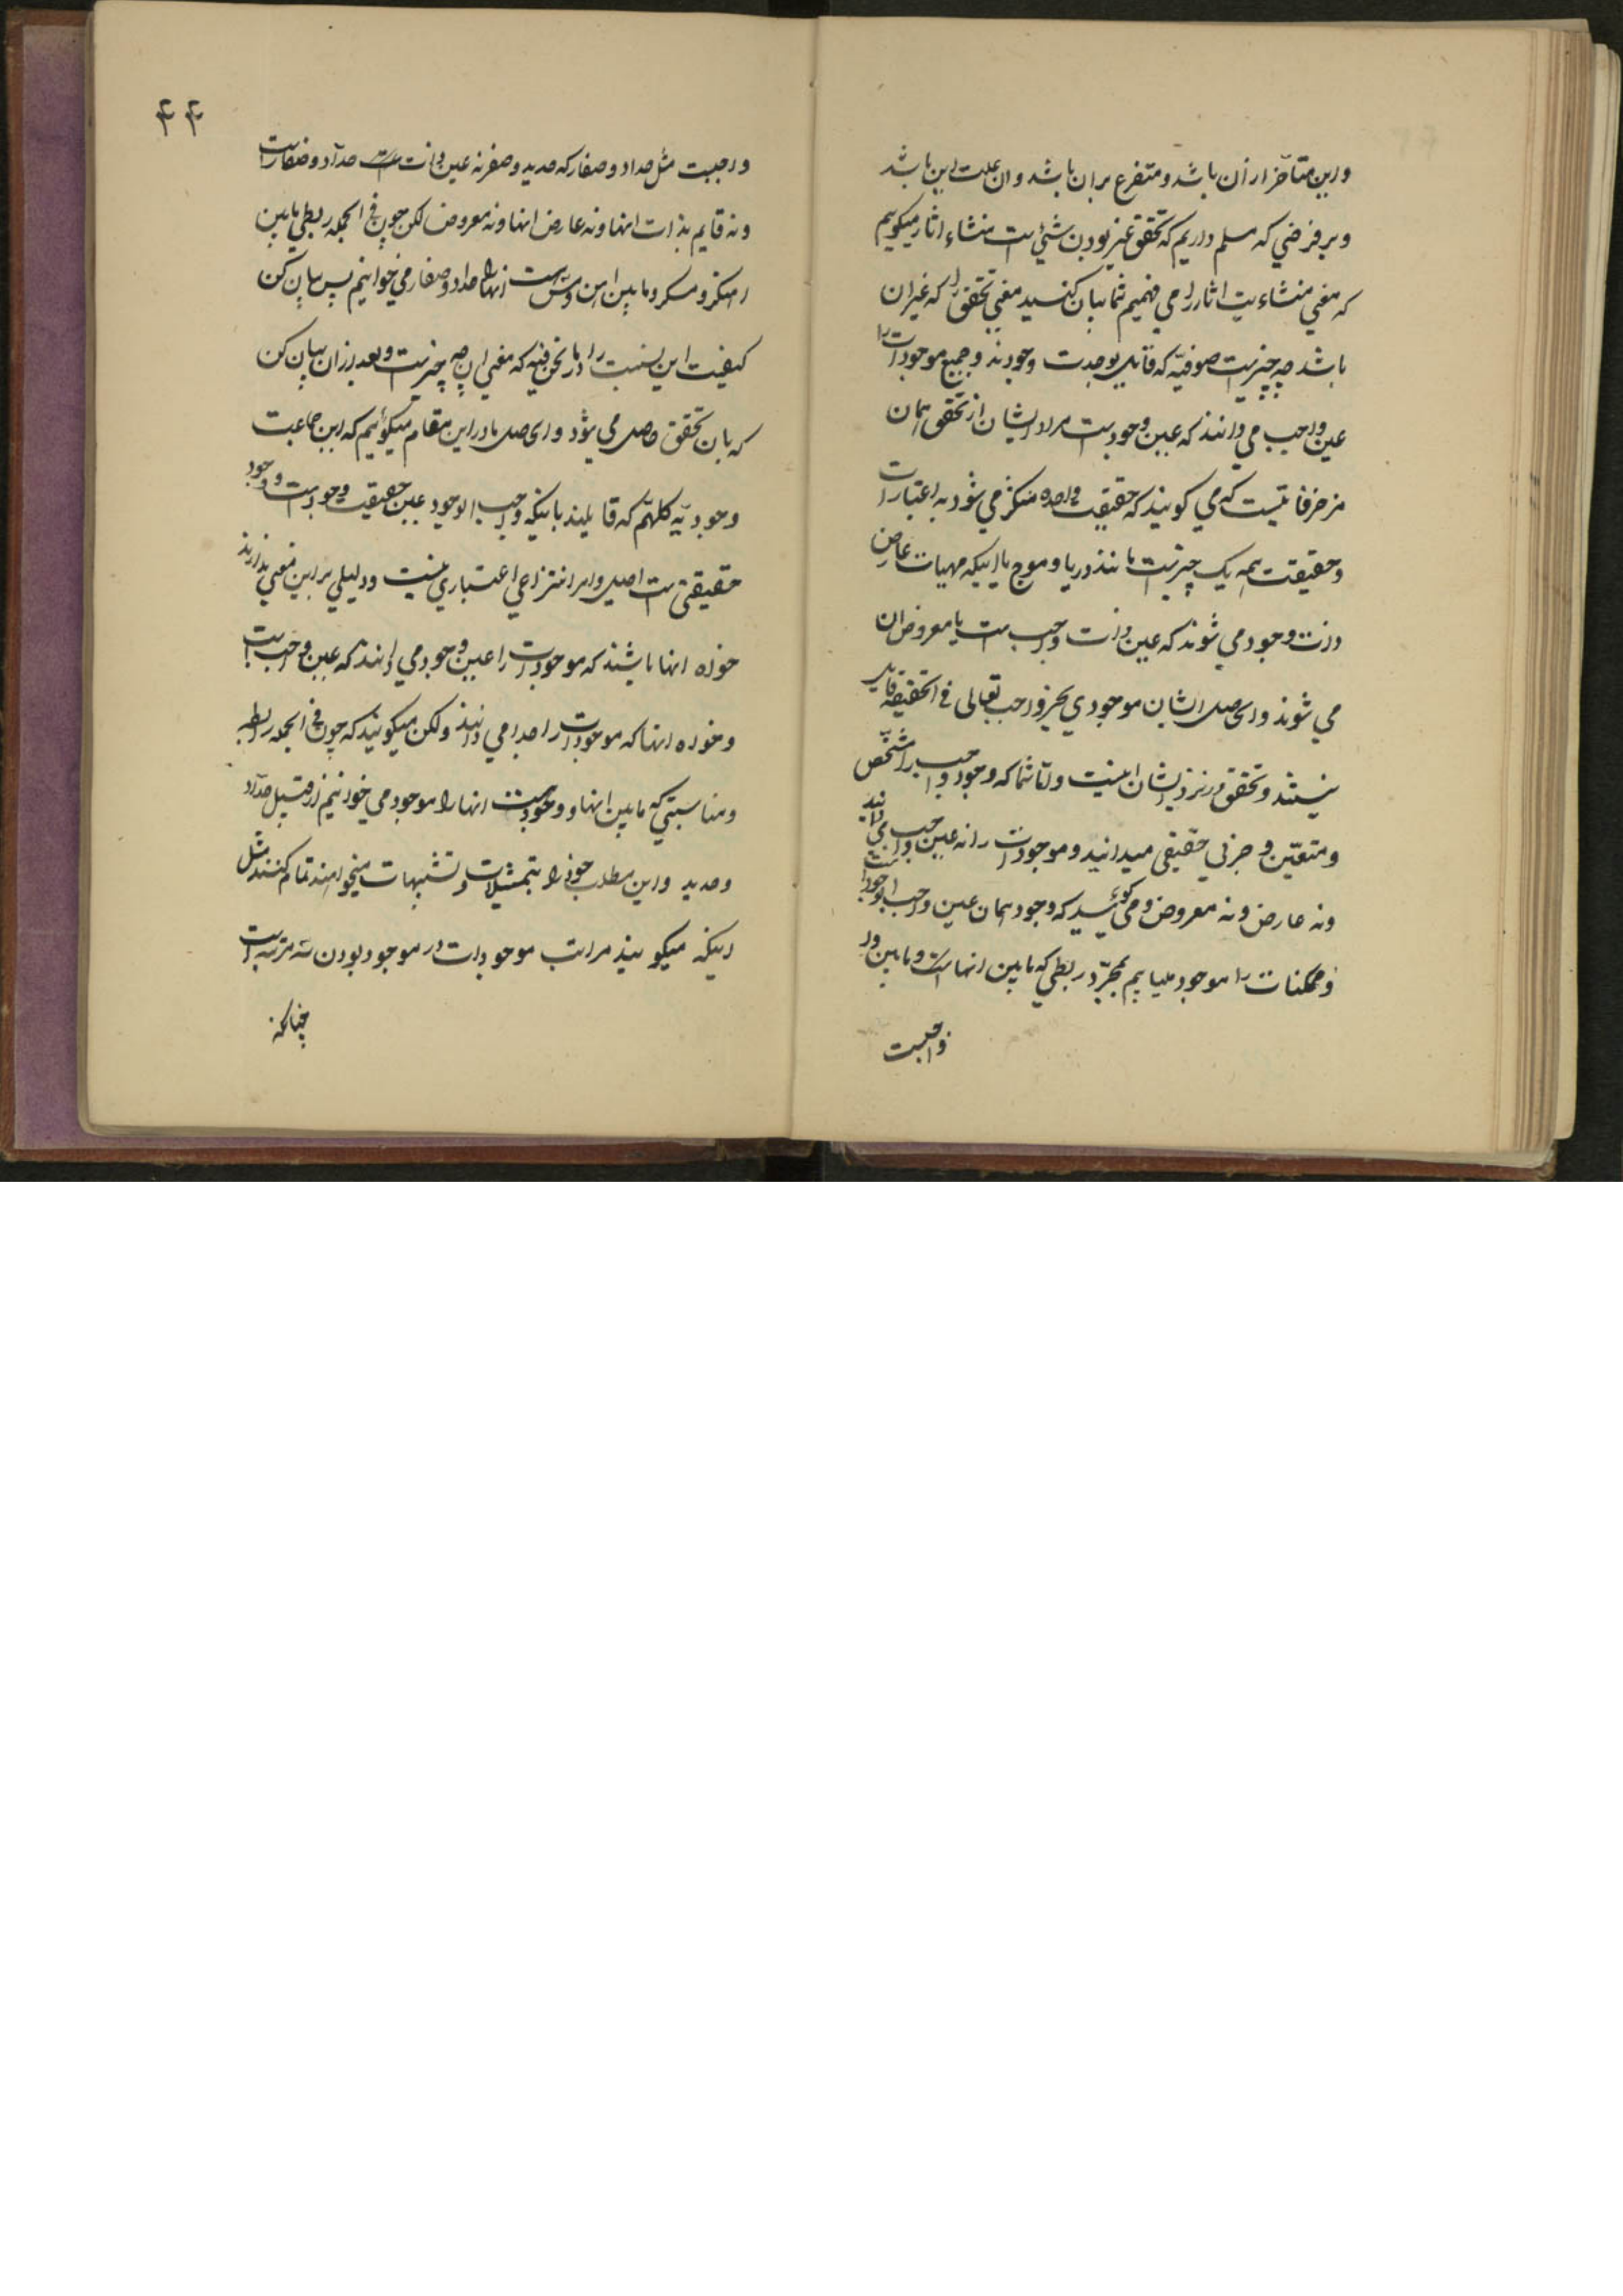 واین متأخر از ان باشد و متفرع بران باشد و ان علت این باشد
و بر فرضی که مسلم داریم که تحقق غیر بودن شئ است منشاء اثار میکوییم
که معنی منشاءیت اثار را می فهمیم شما بیان کنید معنی تحقق را که غیر ان
باشد چه چیز است صوفیّه که قایل بوحدت وجودند و جمیع موجودات را
عین واجب می دانند که عین وجود است مراد ایشان از تحقق همان
مزخرفاتیست که می کویند که حقیقت واحده متکثر می شود به اعتبارات
و حقیقت همه یک چیز است مانند دریا و موج یا اینکه مهیات عارض
ذات وجود می شوند که عین ذات واجب است یا معروض ان
می شوند والحاصل ایشان موجودی بجز واجب تعالی فی الحقیقه قایل
نیستند و تحقق در نزد ایشان اینست و اما شما که وجود واجب را مشخص
و متعیّن و جزئی حقیقی میدانید و موجودات را نه عین واجب می دانید
و نه عارض و نه معروض و می کوئید که وجود همان عین واجب الوجود است
و ممکنات را موجود میابیم بمجرّد ربطی که مابین انها است و مابین ور
واجبست
۴۴
واجبست مثل حداد و صفار که حدید و صفر نه عین ذات حداد و صفار است
و نه قایم بذات انها و نه عارض انها و نه معروض لکن چون فی الجمله ربطی مابین
انها را حداد و صفار می خوانیم پس بیان کن
کیفیت این نسبت را در ما نحن فیه که معنی ان چه چیز است و بعد از ان بیان کن
که بان تحقق حاصل می شود و الحاصل ما در این مقام میکوئیم که این جماعت
وجودیّه کلهم که قایلیند باینکه واجب الوجود عین حقیقت وجود است و وجود
حقیقتی است اصیل و امر انتزاعی اعتباری نیست و دلیلی بر این معنی ندارند
خواه انها باشند که موجودات را عین وجود می دانند که عین واجب است
و خواه انها که موجودات را جدا می دانند و لکن میکویند که چون فی الجمله رابطه
و مناسبتی که مابین انها و وجود است انها را موجود می خوانیم از قبیل حدّاد
و حدید و این مطلب خود را بتمثیلات و تشبیهات میخواهند تمام کنند مثل
اینکه میکویند مراتب موجودات در موجود بودن سه مرتبه است
چنانکه